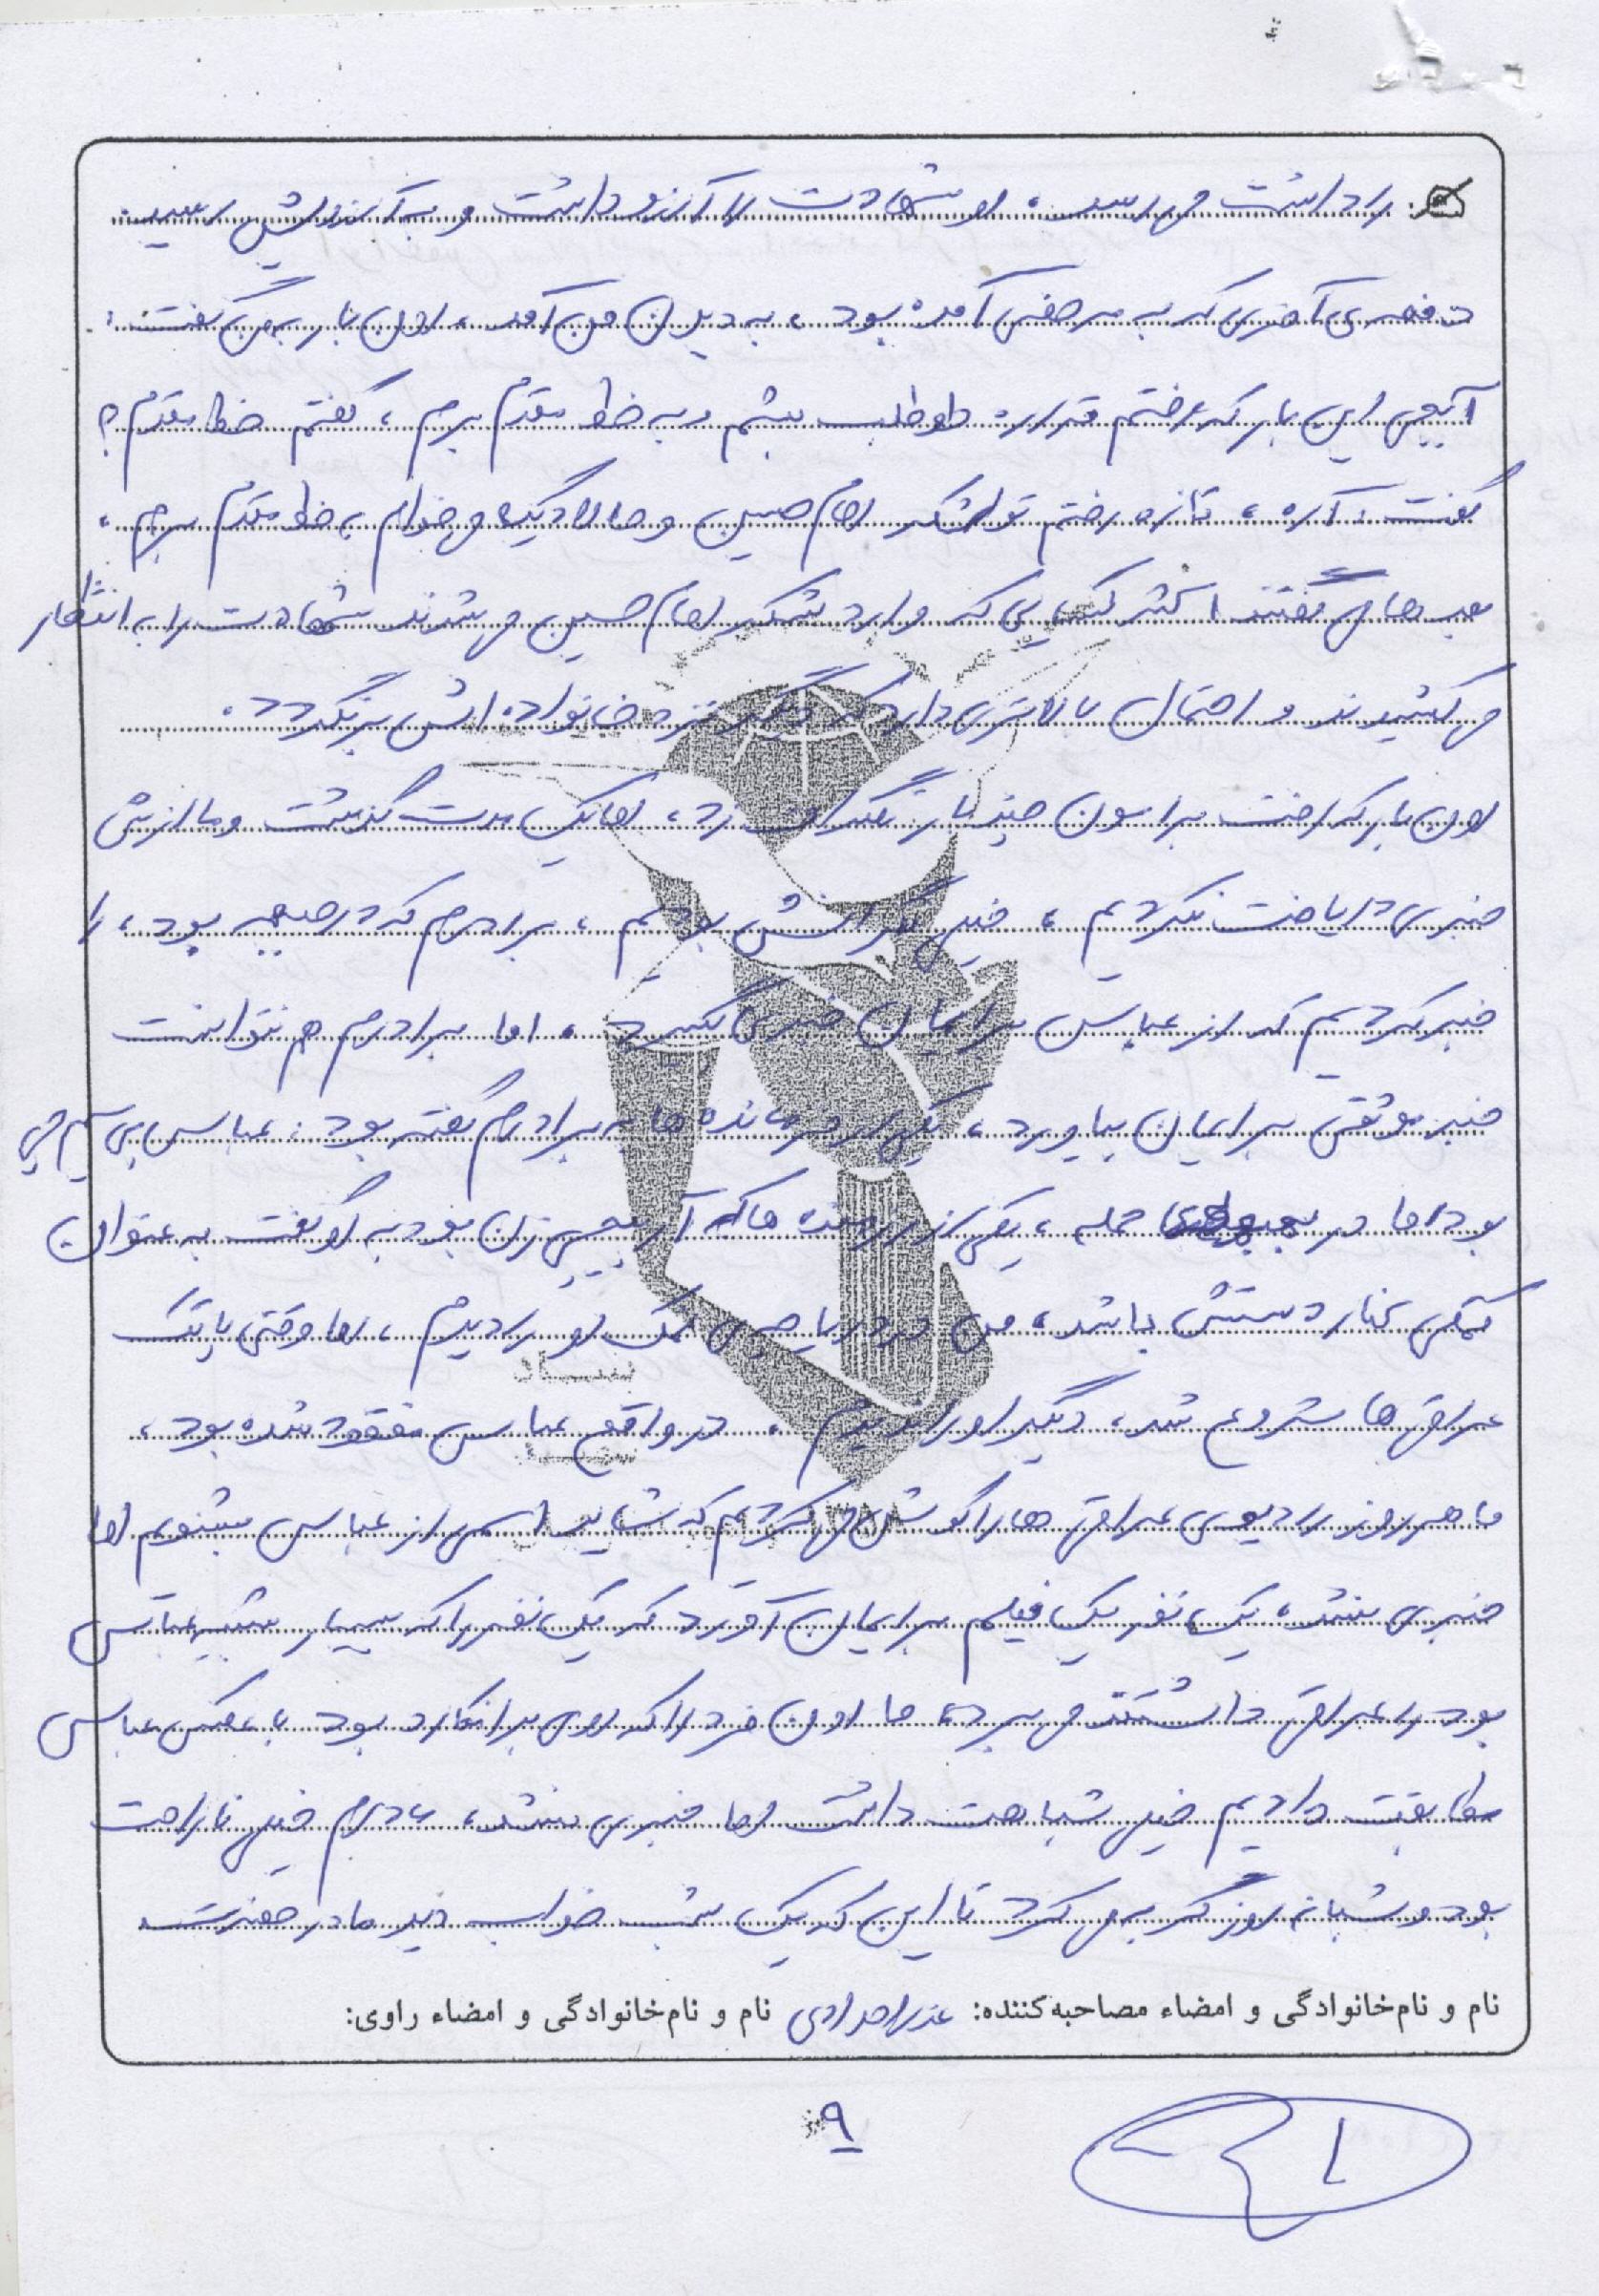 را داشت می‌رسد، او شهادت را آرزو داشت و به آرزویش رسید.
دفعه‌ی آخری که به مرخصی آمده بود، به دیدن من آمد، اون بار به من گفت:
آبجی این بار که رفتم قراره داوطلب بشم و به خط مقدم برم، گفتم خط مقدم؟
گفت: آره، تازه رفتم تو لشکر امام حسین و حالا دیگه می‌خوام به خط مقدم برم،
بعدها می‌گفتند اکثر کسایی که وارد لشکر امام حسین می‌شدند شهادت را به انتظار
می‌کشیدند و احتمال بالاتری دارد که دیگر نزد خانواده‌اش برنگردد.
اون بار که رفت برامون چند بار تلگراف زد، اما یک مدت گذشت و ما ازش
خبری دریافت نکردیم، خیلی نگرانش بودیم، برادرم که در جبهه بود، را
خبر کردیم که از عباس برایمان خبری بگیرد، اما برادرم هم نتوانست
خبر موثقی برایمان بیاورد، یکی از فرمانده‌ها به برادرم گفته بود: عباس بی‌سیم‌چی
بود اما در حمله، یکی از رزمنده‌ها که آرپی‌جی‌زن بود به او گفت به عنوان
کمکی کنار دستش باشد، من او را دیدم، اما وقتی پاتک
عراقی‌ها شروع شد، دیگر او را ندیدم. در واقع عباس مفقود شده بود،
ما هر روز رادیوی عراقی‌ها را گوش می‌کردیم که شاید اسمی از عباس بشنویم اما
خبری نشد، یک نفر یک فیلم برایمان آورد که یک نفر را که بسیار شبیه عباس
بود را عراقی داشتند می‌برد، ما اون فرد را که روی برانکارد بود با عکس عباس
مطابقت دادیم خیلی شباهت داشت اما خبری نشد، مادرم خیلی ناراحت
بود و شبانه روز گریه می‌کرد تا این که یک شب خواب دید مادر حضرت
نام و نام‌خانوادگی و امضاء مصاحبه‌کننده: نام و نام‌خانوادگی و امضاء راوی:
۹